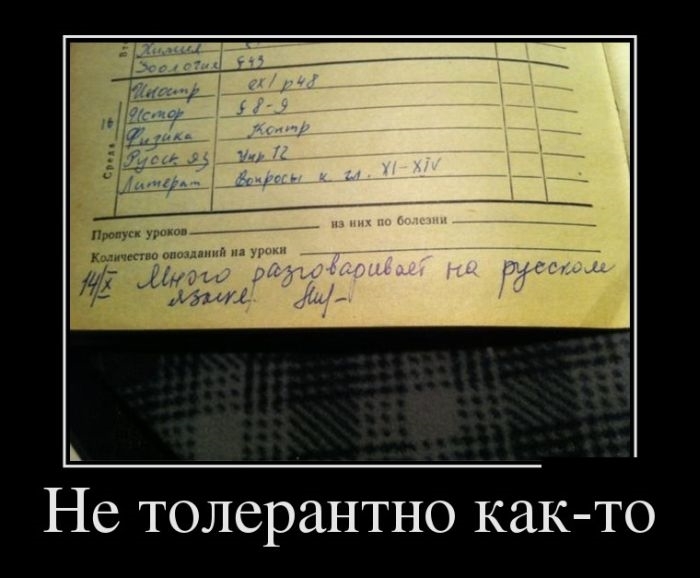 Вт
Химия
Зоология §43
Иностр ex1 p48
Истор § 8-9
16 Физика Контр
Среда Русск яз Упр 12
Литерат Вопросы к гл. XI-XIV
Пропуск уроков из них по болезни
Количество опозданий на уроки
14/X Много разговаривает на русском
языке
Не толерантно как-то